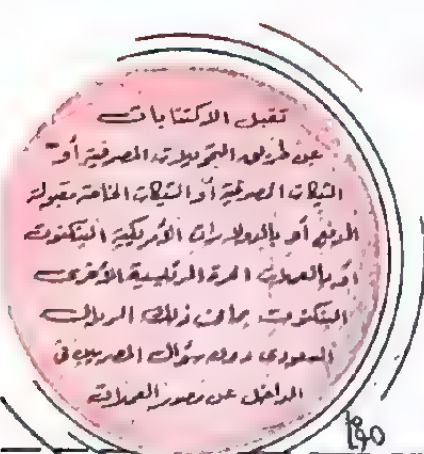 تقبل الاكتتابات
عن طريق التحويلات المصرفية أو
الشيكات المصرفية أو الشيكات الخاصة مقبولة
الدفع أو بالدولارات الأمريكية البنكنوت
أو بالعملات الحرة الرئيسية الأخرى
البنكنوت بما فى ذلك الريال
السعودى دون سؤال المصريين فى
الداخل عن مصدر العملات